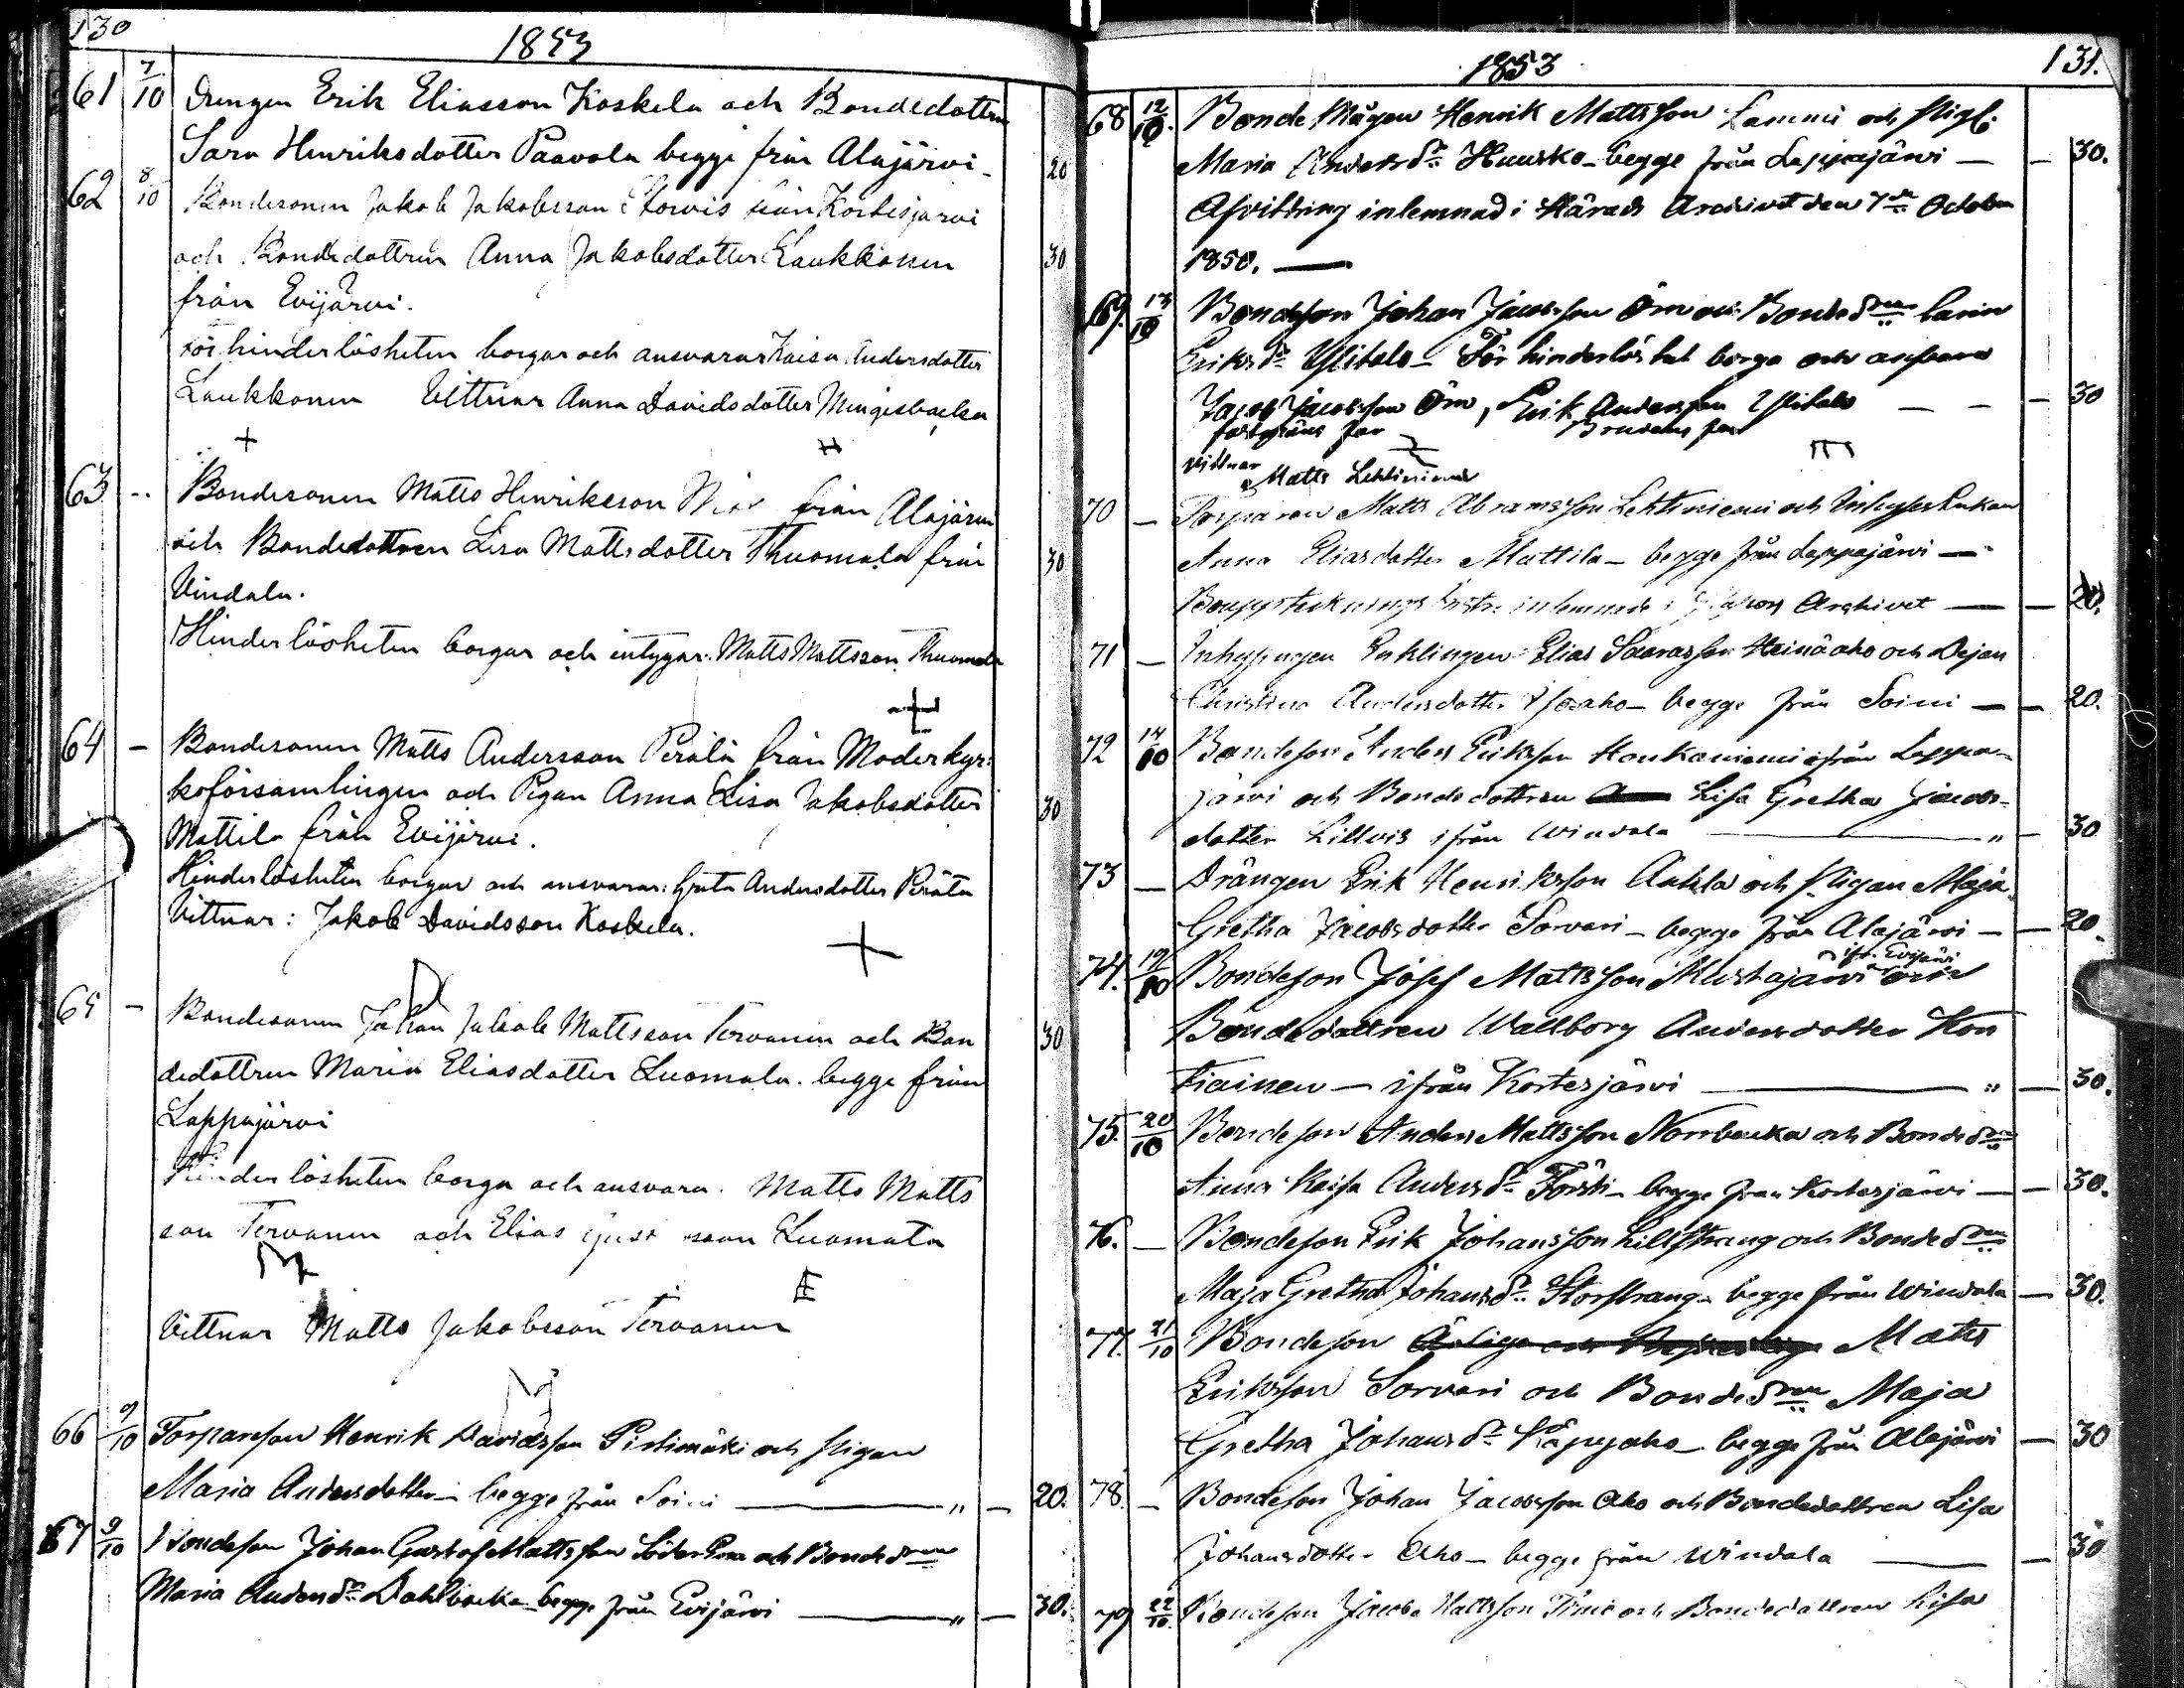 130
1853
61 7/10 Drengen Erik Eliasson Koskela och Bondedottren
Sara Henriksdotter Paavola begge från Alajärvi - 20
62 8/10 Bondesonen Jakob Jakobsson Storvis från Kortesjärvi
och Bondedottren Anna Jakobsdotter Laukkonen 30
från Evijärvi.
För hinderlösheten borgar och ansvarar Kaisa Andersdotter
Laukkonen Vittnar Anna Davidsdotter Mengesbacka
63 .. Bondesonen Matts Henriksson från Alajärvi
och Bondedottren Lisa Mattsdotter Thuomala från 30
Vindala.
Hinderlösheten borgar och intygar: Matts Mattsson Thuomala
64 - Bondesonen Matts Andersson Perälä från Moderkyr:
koförsamlingen och Pigan Anna Lisa Jakobsdotter 30
Mattila från Evijärvi.
Hinderlösheten borgar och ansvarar: Greta Andersdotter Perälä
Vittnar: Jakob Davidsson Koskela.
65 - Bondesonen Johan Jakob Mattsson Tervonen och Bon 30
dedottren Maria Eliasdotter Luomala. begge från
Lappajärvi
Hinderlösheten borga och ansvara. Matts Matts
son Tervonen och Elias son Luomala
Vittnar Matts Jakobsson Tervonen
66 9/10 Torpareson Henrik Davidsson Pirtimäki och Pigan
Maria Andersdotter - begge från Soini — " — 20.
67 9/10 Bondeson Johan Gustaf Mattsson och Bonded:ren
Maria Anders d:r Dahlbacka - begge från Evijärvi — " — 30.
1853
131.
68 12/10. Bonde Mågen Henrik Mattsson Lammi och
Maria Anders d:r Huusko - begge från Lappajärvi — — 30.
Afvittring inlemnad i Härads Archivet den 7de October
1850. —
69. 13/10 Bondeson Johan Jacobsson Öm och Bonded:ren Carin
Eriks d:r Ylitalo - För hinderlöshet borga och ansvara
Jacob Jacobsson Öm, Erik Andersson Ylitalo — — — 30
fästmans far Brudens far
vittnar Matts Lehtiniemi
70 — Torparen Matts Abramsson Lehtiniemi och Inhyses Enkan
Anna Eliasdotter Mattila - begge från Lappajärvi —
Boupptecknings Instr. inlemnade i Archivet — — 20.
71 — Inhysingen Enklingen Elias Heinäaho och Dejan
Christina Andersdotter - begge från Soini — — 20.
72 14/10 Bondeson Anders Eriksson Honkaniemi ifrån Lappa-
järvi och Bondedottren Lisa Gretha Jacobs-
dotter Lillvis ifrån Windala — " — 30
73 — Drängen Erik Henriksson Aukla och Pigan Maja
Gretha Jacobsdotter Sorvari - begge från Alajärvi — — 20.
ifr. Evijärvi
74. 19/10 Bondeson Josef Mattsson Mustajärvi och
Bondedottren Wallborg Andersdotter Kon
tiainen — ifrån Kortesjärvi — " — 30.
75. 20/10 Bondeson Anders Mattsson Norrbacka och Bonded:ren
Anna Kaisa Anders d:r Försti - begge från Kortesjärvi — — 30.
76. — Bondeson Erik Johansson Lillstrang och Bonded:ren
Maja Gretha Johans d:r Storstrang - begge från Windala — 30.
77. 21/10 Bondeson Matts
Eriksson Sorvari och Bonded:ren Maja
Gretha Johans d:r - begge från Alajärvi — 30
78. — Bondeson Johan Jacobsson Aho och Bondedottren Lisa
Johansdotter Aho - begge från Windala — — 30
79 22/10. Bondeson Jacob Mattsson och Bondedottren Lisa